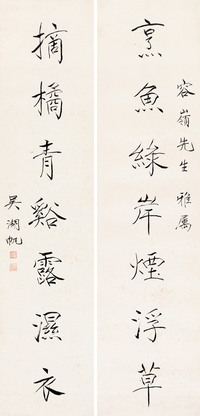 烹魚綠岸煙浮草
容嶺先生 雅屬
摘橘青谿露濕衣
吳湖帆